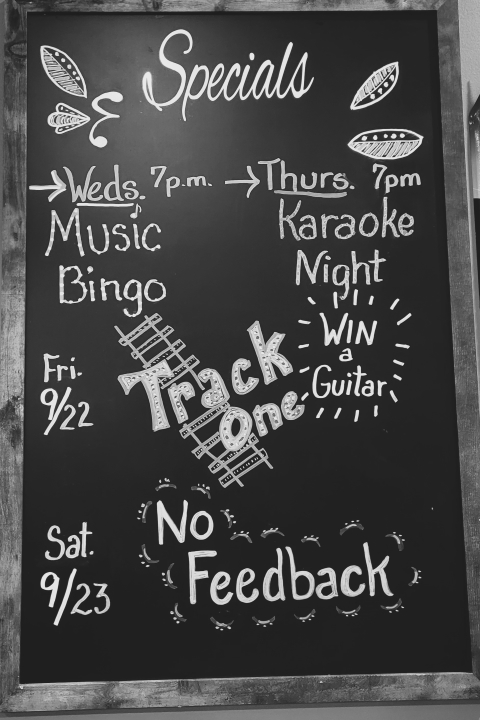 Specials
Weds. 7p.m.
Music
Bingo
Thurs. 7pm
Karaoke
Night
WIN
a
Guitar
Fri.
9/22
Track
One
Sat.
9/23
No
Feedback